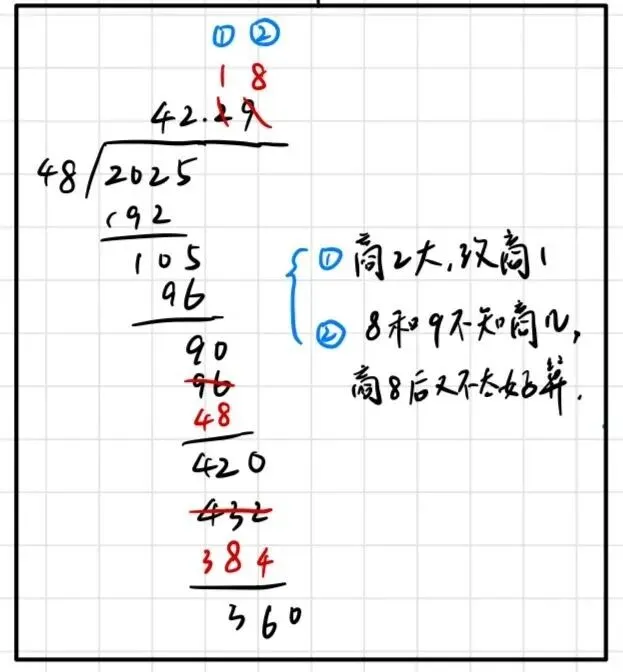 ① ②
1 8
42.29
48 2025
192
105
96
90
96
48
420
432
384
360
① 商2大,改商1
② 8和9不知商几,
商8后又不太好算.